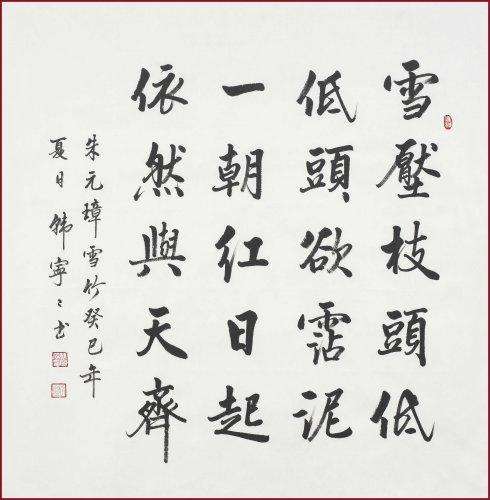 雪壓枝頭低
低頭欲霑泥
一朝紅日起
依然與天齊
朱元璋雪竹癸巳年
夏日韩寧〻书